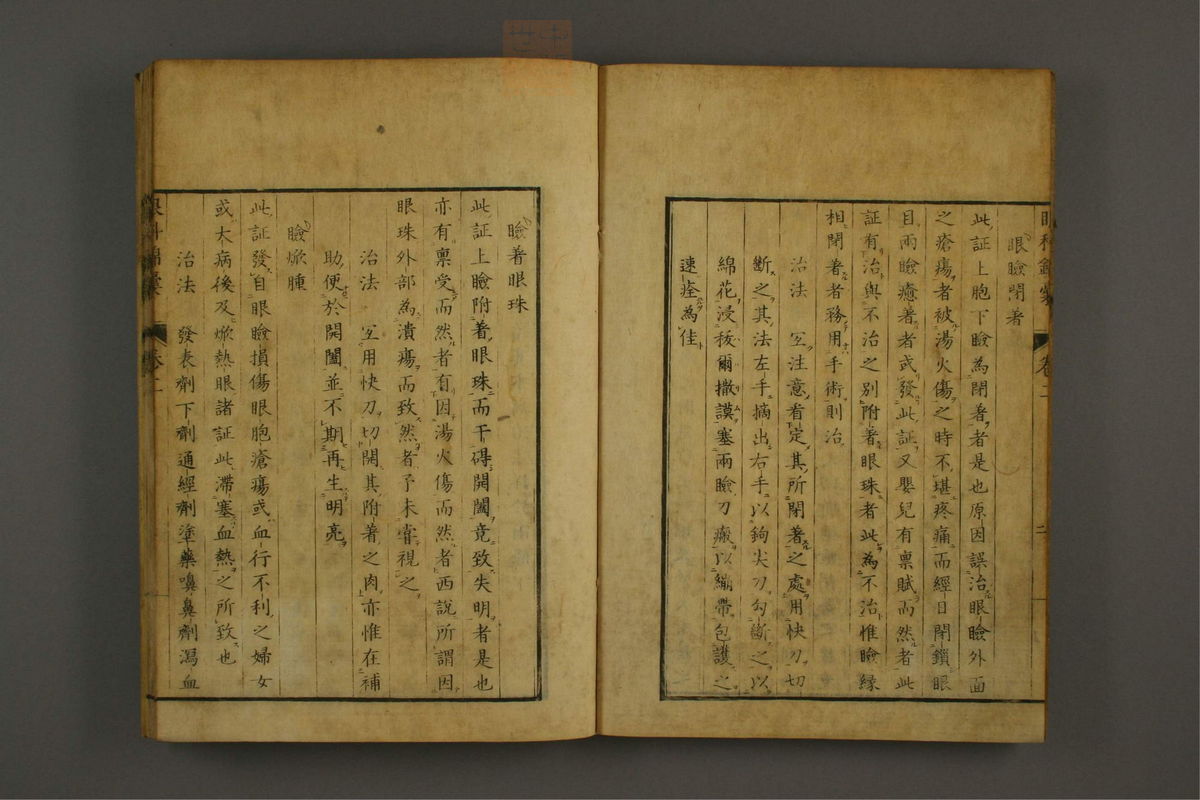 眼科錦囊　卷二　二
眼瞼閉著
此証上胞下瞼為閉著者是也原因誤治眼瞼外面
之瘡瘍者被湯火傷之時不堪疼痛而經日閉鎖眼
目兩瞼癒著者或發此証又嬰兒有稟賦而然者此
証有治與不治之別附著眼珠者此為不治惟瞼緣
相閉著者務用手術則治
治法　宜注意看定其所閉著之處用快刀切
斷之其法左手摘出右手以鉤尖刀勾斷之以
綿花浸拔爾撒謨塞兩瞼刀瘢以繃帶包護之
速痊為佳
瞼著眼珠
此証上瞼附著眼珠而干碍開闔竟致失明者是也
亦有稟受而然者有因湯火傷而然者西說所謂因
眼珠外部為潰瘍而致然者予未嘗視之
治法　宜用快刀切開其附著之肉亦惟在補
助便於開闔並不期再生明亮
瞼焮腫
此証發自眼瞼損傷眼胞瘡瘍或血行不利之婦女
或大病後及焮熱眼諸証此滯塞血熱之所致也
治法　發表劑下劑通經劑塗藥嗅鼻劑瀉血
眼科錦囊　卷二